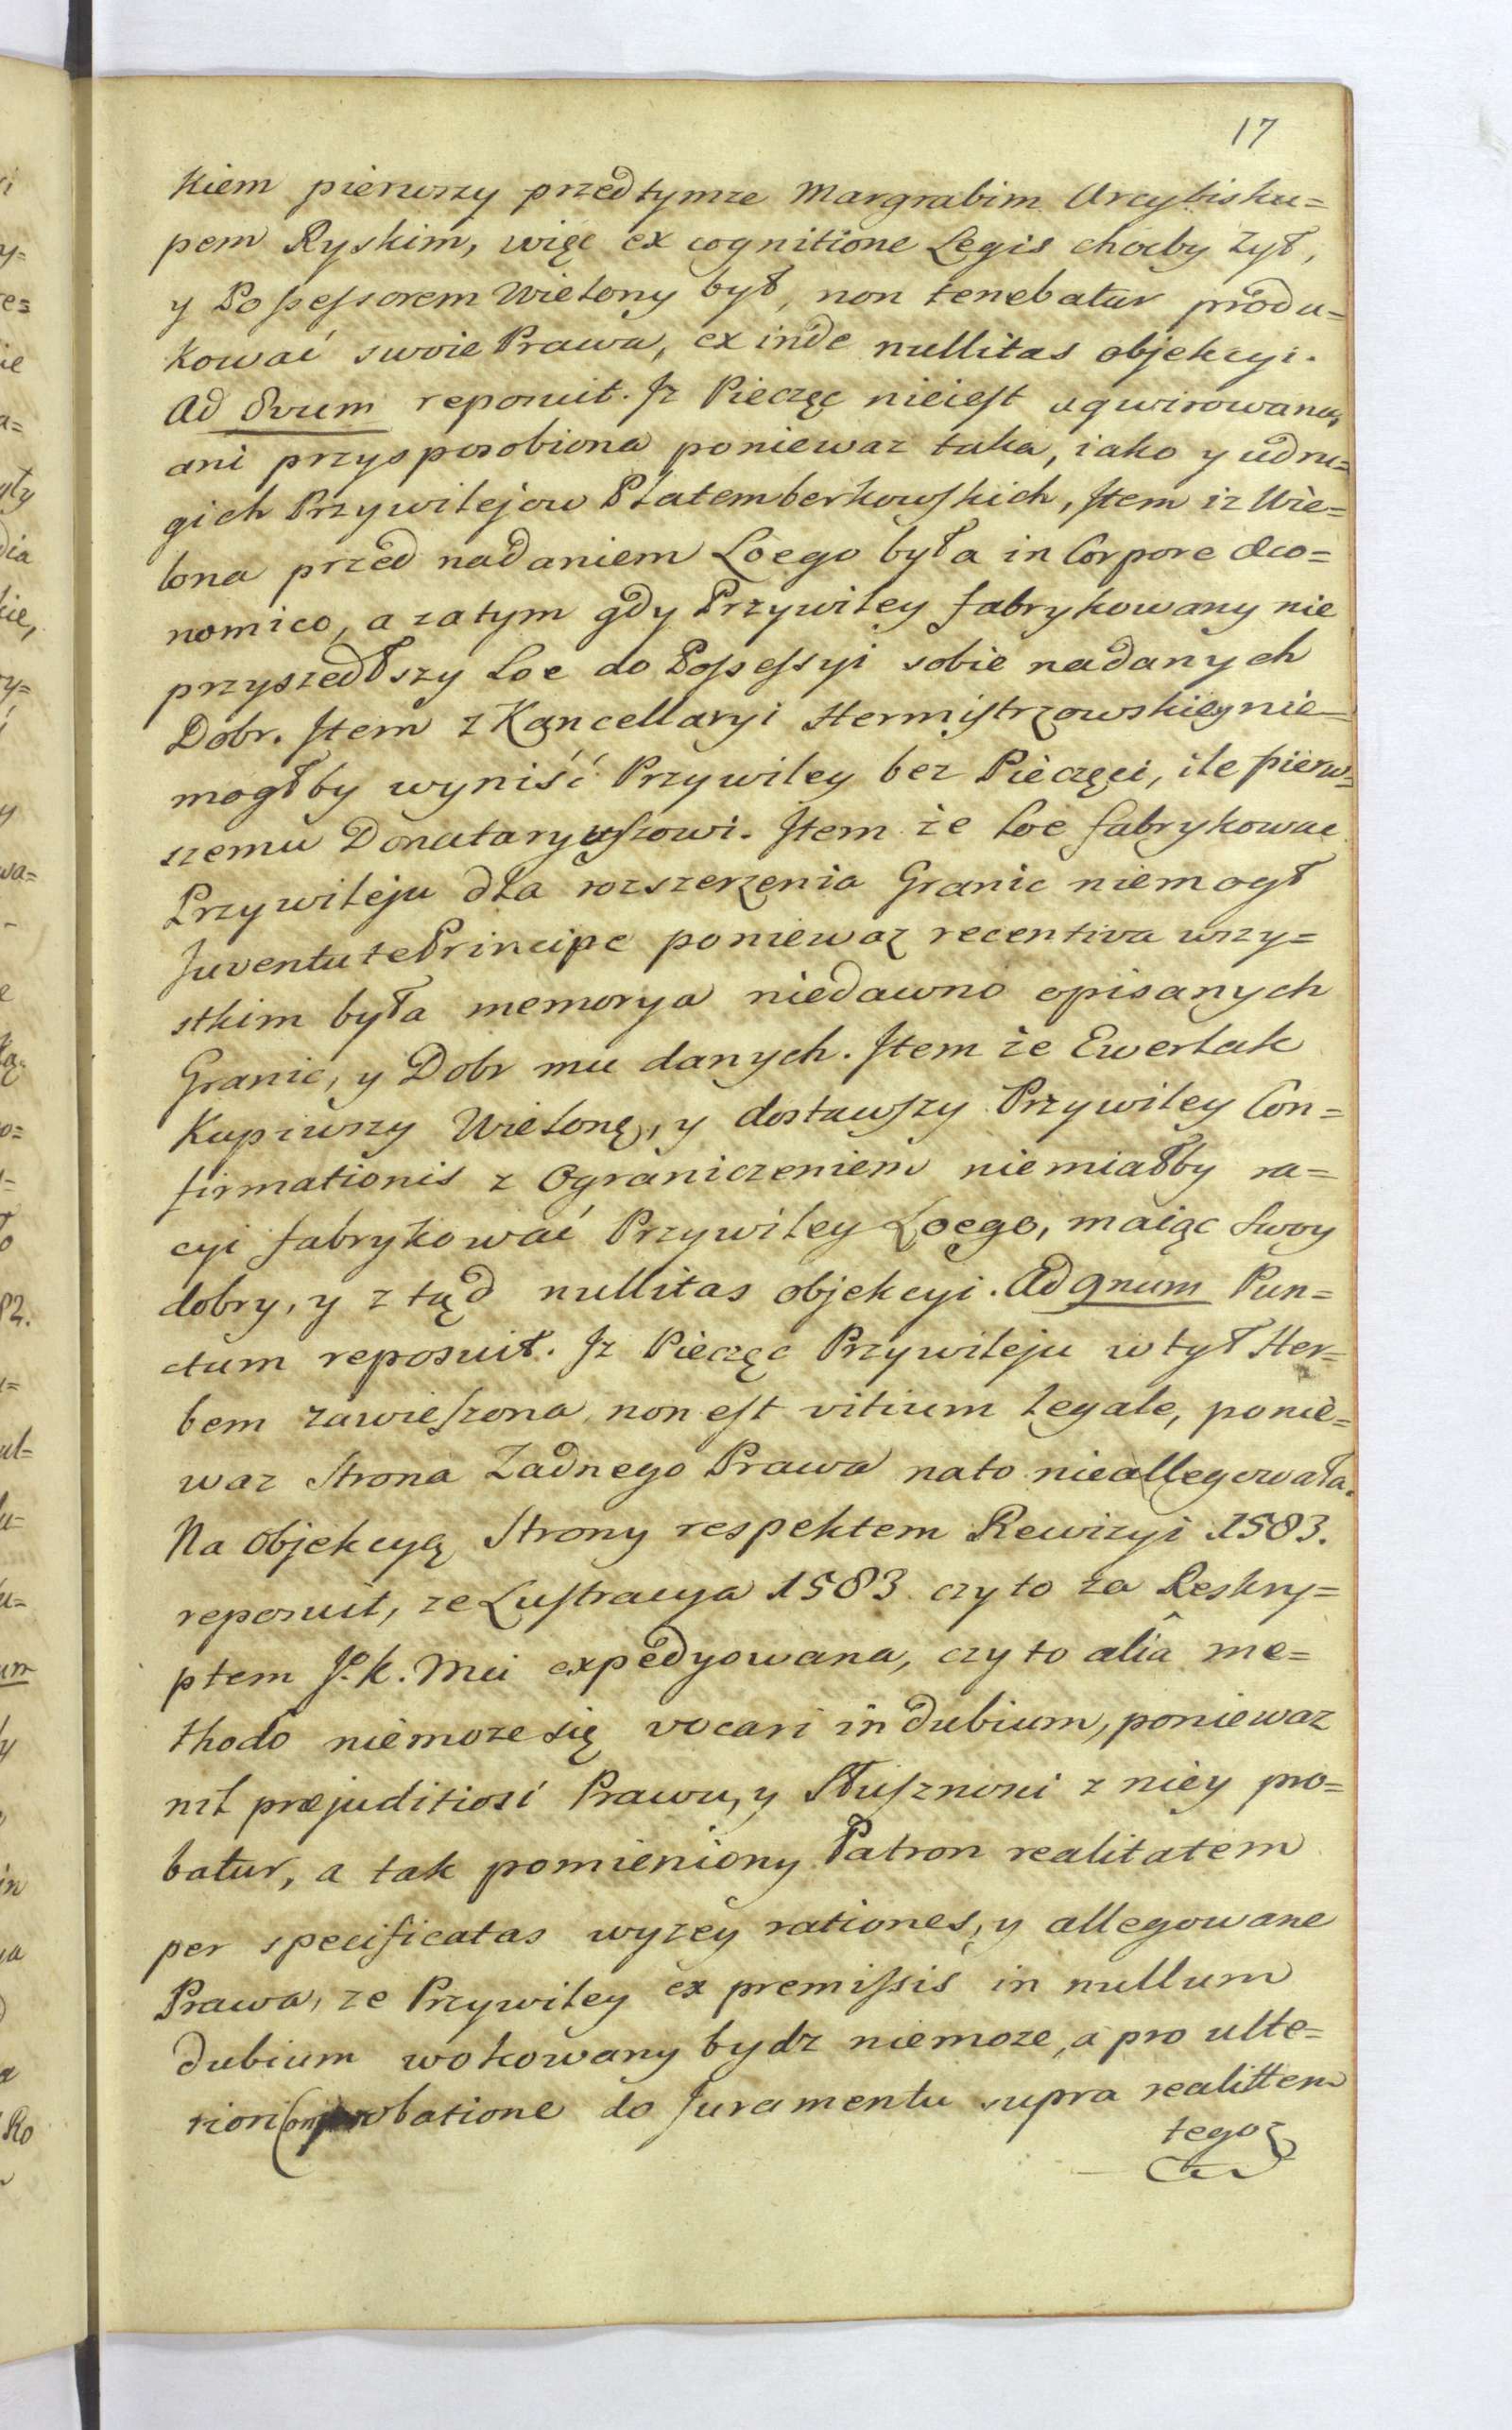 17
kiem pierwszy przed tymze Margrabim Arcybisku=
pem Ryskim, więc ex cognitione Legis choćby żył,
y Possessorem Wielony był, non tenebatur produ=
kować swoie Prawa, ex inde nullitas objekcyi.
Ad 8vum reposuit. Iz Pieczęc nieiest aqwirowana,
ani przysposobiona poniewaz taka, iako y u dru=
gich Przywilejow Platemberkowskich, Item iz Wie=
lona przed nadaniem Loego była in Corpore Oeco=
nomico, a zatym gdy Przywiley fabrykowany nie
przyszedłszy Loe do Possessyi sobie nadanych
Dobr. Item z Kancellaryi Hermistrzowskiey nie=
mogłby wyniść Przywiley bez Pieczęci, ile pierw=
szemu Donataryuszowi. Item że Loe fabrykowac
Przywileju dla rozszerzenia Granic niemogł
Juventute Principe poniewaz recentiva wszy=
stkim była memorya niedawno opisanych
Granic, y Dobr mu danych. Item że Ewertak
Kupiwszy Wielonę, y dostawszy Przywiley Con=
firmationis z Ograniczeniem niemiałby ra=
cyi fabrykować Przywiley Loego, maiąc swoy
dobry, y ztąd nullitas objekcyi. Ad 9num Pun=
ctum reposuit. Iz Pieczęc Przywileju w tył Her=
bem zawieszona non est vitium legale, ponie=
waz Strona Żadnego Prawa nato nieallegowała.
Na Objekcyą Strony respektem Rewizyi 1583.
reposuit, ze Lustracya 1583 czy to za Reskry=
ptem J. K. Mci expedyowana, czy to aliâ me=
thodo niemoze się vocari in dubium, poniewaz
nil præjuditiosi Prawu, y Słusznosci z niey pro=
batur, a tak pomieniony Patron realitatem
per specificatas wyzey rationes, y allegowane
Prawa, ze Przywiley ex premissis in nullum
dubium wokowany bydz niemoze, a pro ulte=
riori Comprobatione do Juramentu supra realittem
tegoz